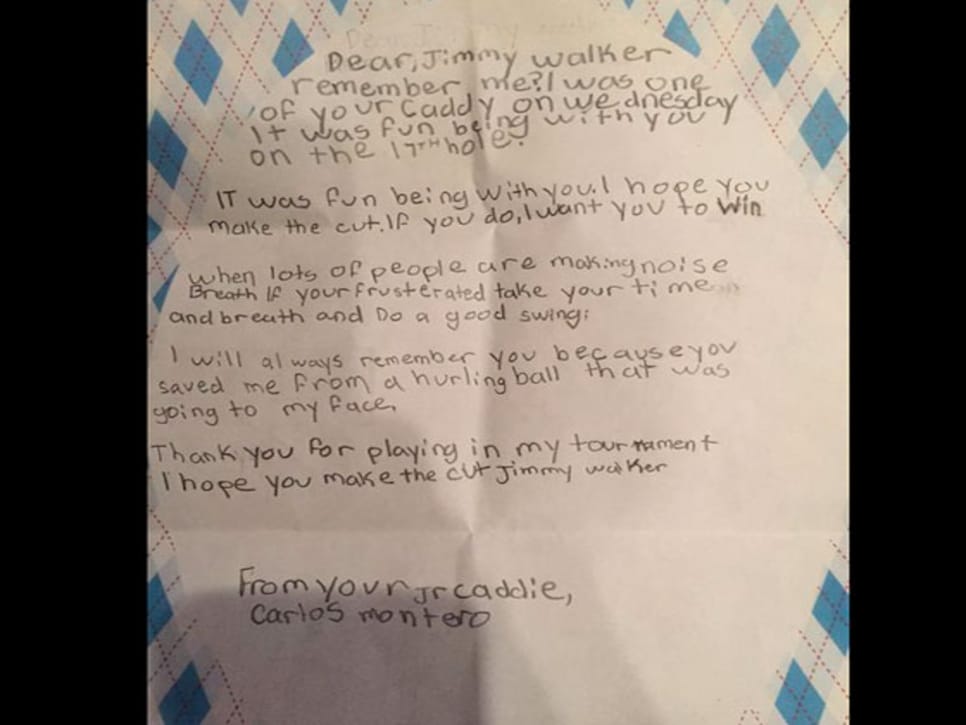 Dear, Jimmy walker
remember me? I was one
of your caddy on wednesday
It was fun being with you
on the 17TH hole.
IT was fun being with you. I hope you
make the cut. If you do, I want you to win
when lots of people are making noise
Breath If your frusterated take your time
and breath and Do a good swing.
I will always remember you because you
saved me from a hurling ball that was
going to my face.
Thank you for playing in my tournament
I hope you make the cut Jimmy walker
From your Jr caddie,
Carlos montero